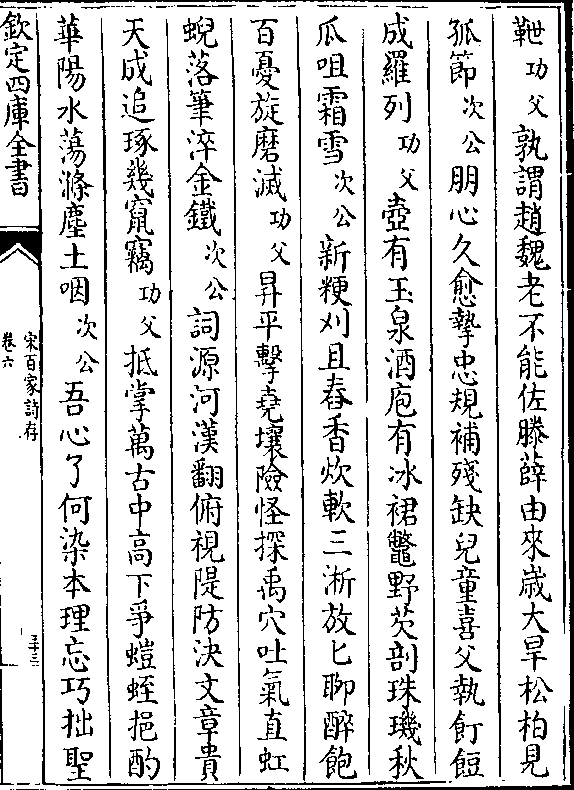 靾功父孰謂趙魏老不能佐滕薛由來歳大旱松柏見
孤節次公朋心久愈摯忠規補殘缺兒童喜父執飣餖
成羅列功父壺有玉泉酒庖有冰裙鼈野芡剖珠璣秋
瓜咀霜雪次公新粳刈且舂香炊軟三淅放匕聊醉飽
百憂旋磨滅功父昇平擊堯壤險怪探禹穴吐氣直虹
蜺落筆淬金鐵次公詞源河漢翻俯視隄防決文章貴
天成追琢幾竄竊功父抵掌萬古中高下爭螘蛭挹酌
華陽水蕩滌塵土咽次公吾心了何染本理忘巧拙聖
欽定四庫全書
宋百家詩存
卷六
三十三